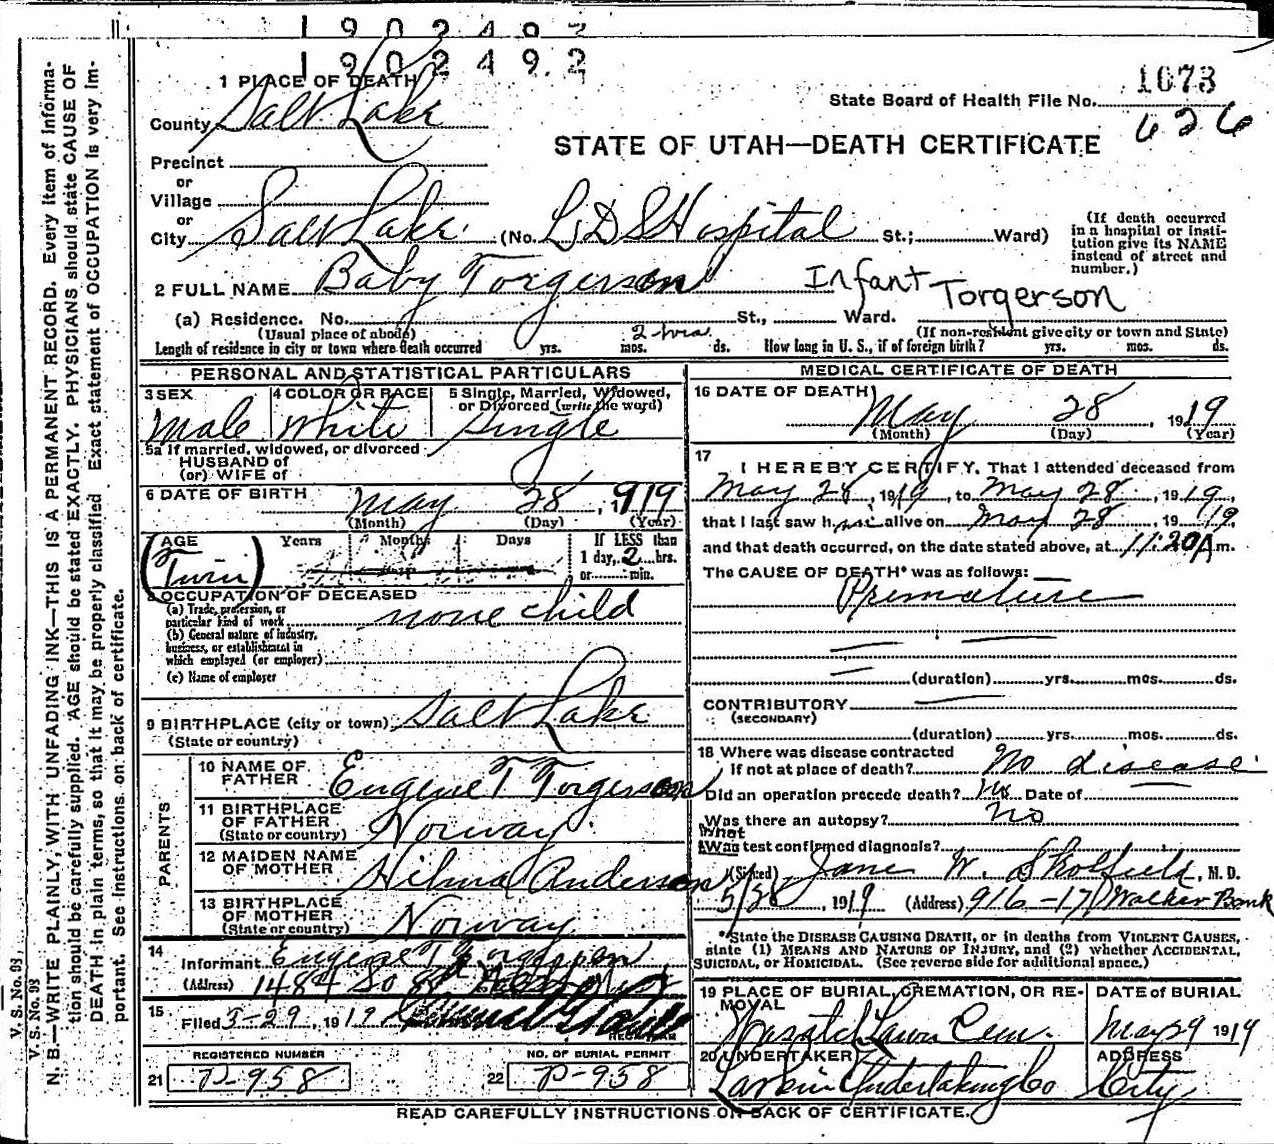 1902492
1902492
1073
State Board of Health File No.
626
STATE OF UTAH—DEATH CERTIFICATE
1 PLACE OF DEATH
County Salt Lake
Precinct
or
Village
or
City Salt Lake (No. L D S Hospital St.; Ward)
(If death occurred in a hospital or institution give its NAME instead of street and number.)
2 FULL NAME Baby Torgerson Infant Torgerson
(a) Residence. No. St., Ward.
(Usual place of abode) (If non-resident give city or town and State)
Length of residence in city or town where death occurred yrs. mos. 2 hrs. ds. How long in U. S., if of foreign birth? yrs. mos. ds.
PERSONAL AND STATISTICAL PARTICULARS
3 SEX Male
4 COLOR OR RACE White
5 Single, Married, Widowed, or Divorced (write the word) Single
5a If married, widowed, or divorced
HUSBAND of
(or) WIFE of
6 DATE OF BIRTH May 28, 1919
(Month) (Day) (Year)
AGE Years Months Days If LESS than
(Twin) 1 day, 2 hrs.
or min.
OCCUPATION OF DECEASED
(a) Trade, profession, or particular kind of work none child
(b) General nature of industry, business, or establishment in which employed (or employer)
(c) Name of employer
9 BIRTHPLACE (city or town) Salt Lake
(State or country)
PARENTS
10 NAME OF FATHER Eugene T Torgerson
11 BIRTHPLACE OF FATHER Norway
(State or country)
12 MAIDEN NAME OF MOTHER Hilma Anderson
13 BIRTHPLACE OF MOTHER Norway
(State or country)
14
Informant Eugene T Torgerson
(Address) 1484 So 8
15
Filed 5-29, 1919
REGISTRAR
REGISTERED NUMBER
21 P-958
NO. OF BURIAL PERMIT
22 P-958
MEDICAL CERTIFICATE OF DEATH
16 DATE OF DEATH May 28, 1919
(Month) (Day) (Year)
17
I HEREBY CERTIFY, That I attended deceased from
May 28, 1919, to May 28, 1919,
that I last saw him alive on May 28, 1919,
and that death occurred, on the date stated above, at 11:20 A m.
The CAUSE OF DEATH* was as follows:
Premature
(duration) yrs. mos. ds.
CONTRIBUTORY
(SECONDARY)
(duration) yrs. mos. ds.
18 Where was disease contracted
If not at place of death? No disease
Did an operation precede death? no Date of
Was there an autopsy? no
What test confirmed diagnosis?
(Signed) Jane W. Skolfield, M. D.
5/28, 1919 (Address) 916-17 Walker Bank
*State the DISEASE CAUSING DEATH, or in deaths from VIOLENT CAUSES,
state (1) MEANS AND NATURE OF INJURY, and (2) whether ACCIDENTAL,
SUICIDAL, or HOMICIDAL. (See reverse side for additional space.)
19 PLACE OF BURIAL, CREMATION, OR REMOVAL
Wasatch Lawn Cem
DATE OF BURIAL
May 29 1919
20 UNDERTAKER
Larkin Undertaking Co
ADDRESS
City
READ CAREFULLY INSTRUCTIONS ON BACK OF CERTIFICATE.
V. S. No. 93
V. S. No. 93
N. B.—WRITE PLAINLY, WITH UNFADING INK—THIS IS A PERMANENT RECORD. Every item of information should be carefully supplied. AGE should be stated EXACTLY. PHYSICIANS should state CAUSE OF DEATH in plain terms, so that it may be properly classified. Exact statement of OCCUPATION is very important. See instructions on back of certificate.